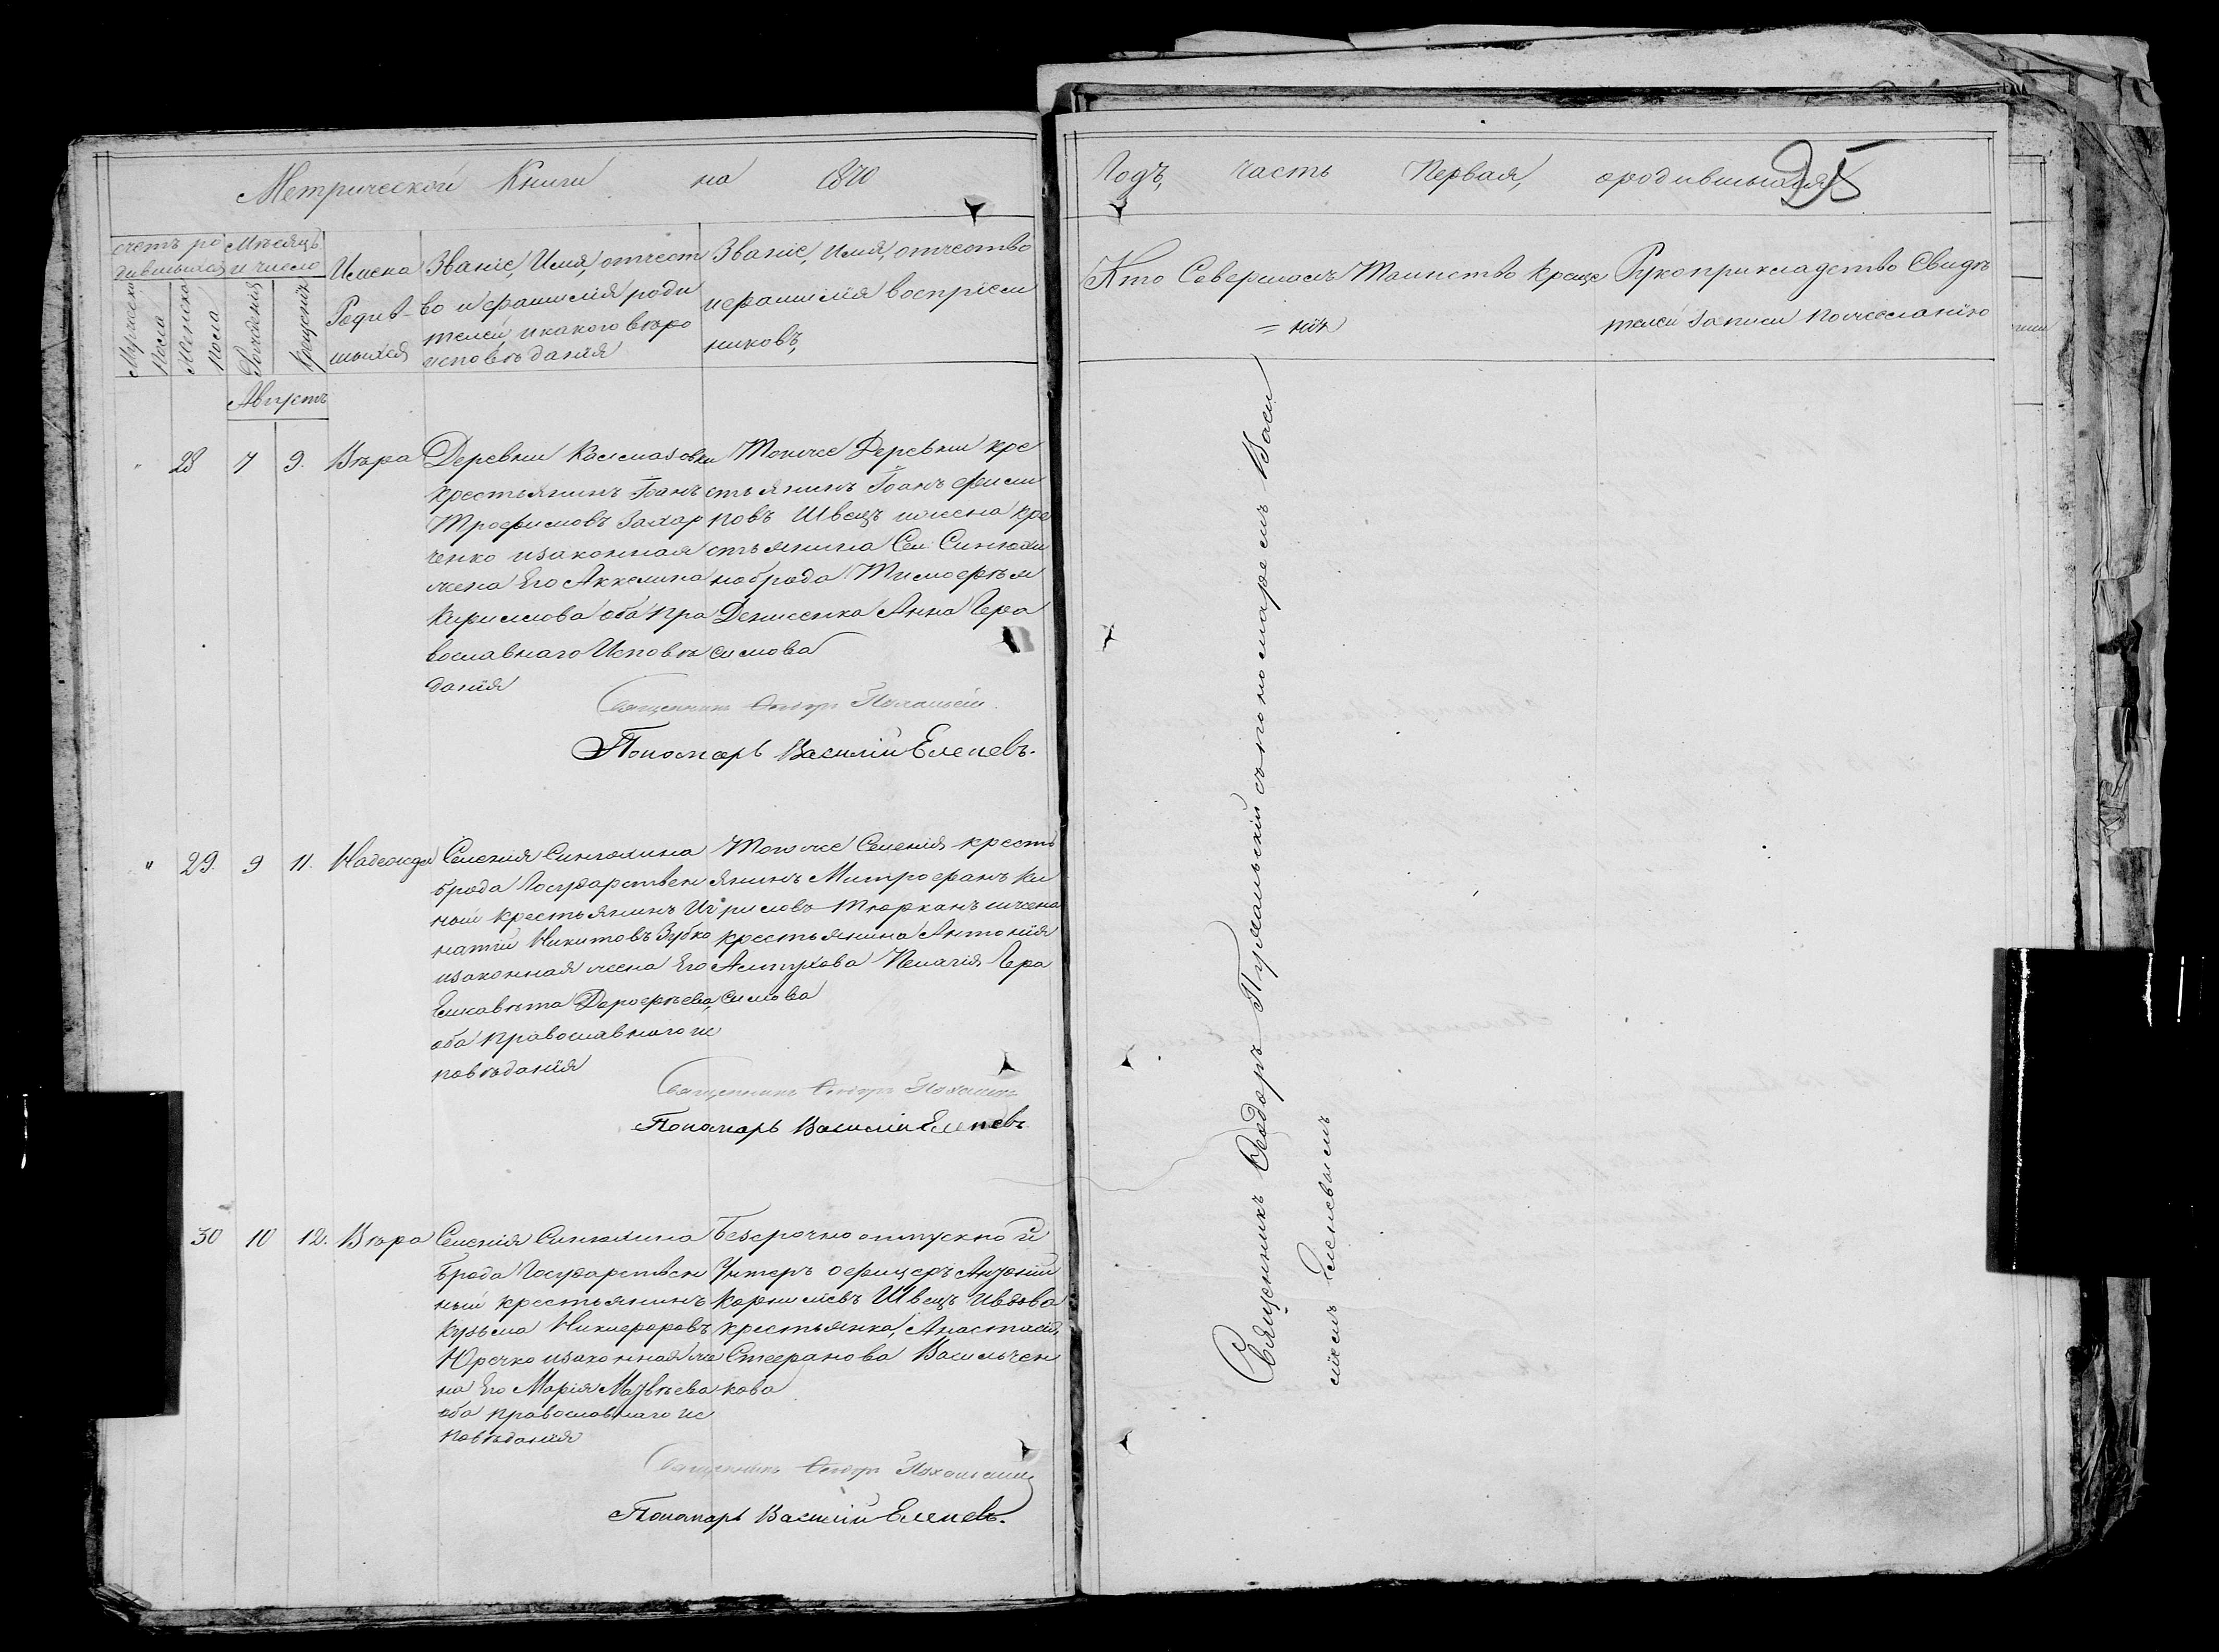 Метрической Книги на 1870
Годъ, часть Первая, ородившихся
25
счетъ ро
дившихся
Мѣсяцъ
и число
Мужеска
пола
Женска
пола
Рожденія
Крещенія
Имена
Родив-
шихся
Званіе, Имя, отчест
во и фамилія роди
телей, и какого вѣро
исповѣданія
Званіе, имя, отчество
и фамилія воспріем
никовъ,
Кто Совершалъ Таинство Креще
= нія
Рукоприкладство Свидѣ
телей записи по желанію
Августъ
" 28 7 9. Вѣра
Деревни
крестьянинъ Іоанъ
Трофимовъ Захар
ченко изаконная
жена Его Акилина
Кирилова оба пра
вославнаго Исповѣ
данія
Тойже Деревни кре
стьянинъ Іоанъ Фили
повъ Швецъ ижена кре
стьянина Сел: Синюхи
ноброда Тимофѣя
Денисенка Анна Гера
симова
Священникъ Ѳеодоръ
Пономарь Василій Еленевъ.
" 29. 9 11. Надежда
Селенія Синюхина
брода Государствен
ный крестьянинъ Иг
натій Никитовъ Зубко
изаконная жена Его
Елисавѣта Дорофѣева,
оба православнаго ис
повѣданія
Тогоже Селенія кресть
янинъ Митрофанъ Ки
риловъ Тюрканъ ижена
крестьянина Антонія
Пелагія Гера
симова
Священникъ Ѳеодоръ
Пономарь Василій Еленевъ
30 10 12. Вѣра
Селенія Синюхина
Брода Государствен
ный крестьянинъ
Кузьма Никифоровъ
Юречко изаконная же
на Его Марія Матвѣева
оба православнаго ис
повѣданія
Безсрочно отпускной
Унтеръ офицеръ Антоній
Корниліевъ Швецъ ивдова
крестьянка, Анастасія
Стефанова Васильчен
кова
Священникъ Ѳеодоръ
Пономарь Василій Еленевъ.
Священникъ Ѳеодоръ съ пономаремъ Васи
ліемъ Еленевымъ